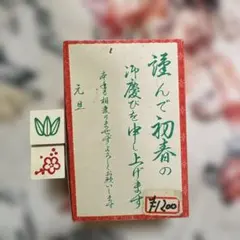 謹んで初春の
御慶びを申し上げます
本年も相変りませずよろしくお願いします
元旦
¥1200